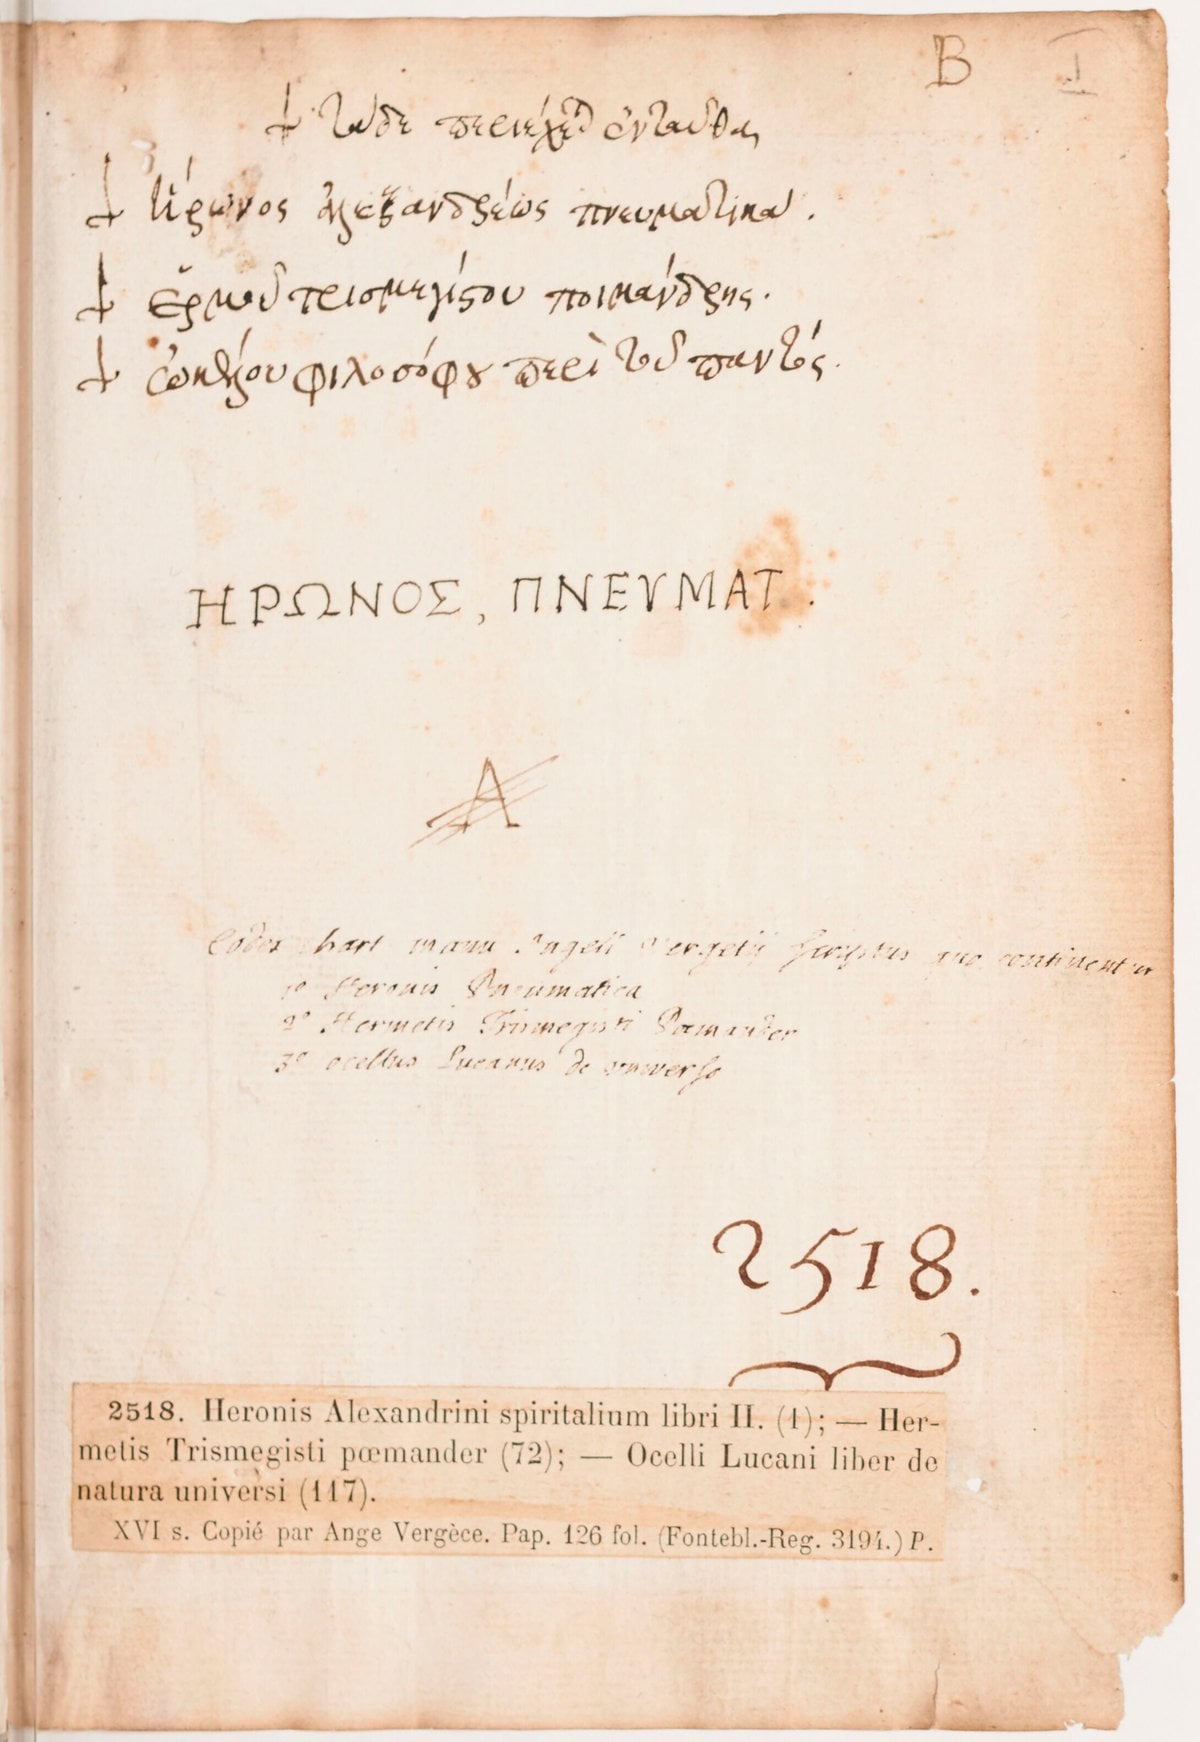 B I
☩ τάδε περιέχεται ἐνταῦθα,
☩ ἥρωνος ἀλεξανδρέως πνευματικά.
☩ ἑρμοῦ τρισμεγίστου ποιμάνδρης.
☩ ὠκέλλου φιλοσόφου περὶ τοῦ παντός.
ΗΡΩΝΟΣ, ΠΝΕΥΜΑΤ.
A
Codex chart manu Angeli Vergetij scriptus quo continentur
1º Heronis Pneumatica
2º Hermetis Trismegisti Pœmander
3º ocellus Lucanus de universo
2518.
2518. Heronis Alexandrini spiritalium libri II. (1); — Her-
metis Trismegisti pœmander (72); — Ocelli Lucani liber de
natura universi (117).
XVI s. Copié par Ange Vergèce. Pap. 126 fol. (Fontebl.-Reg. 3194.) P.